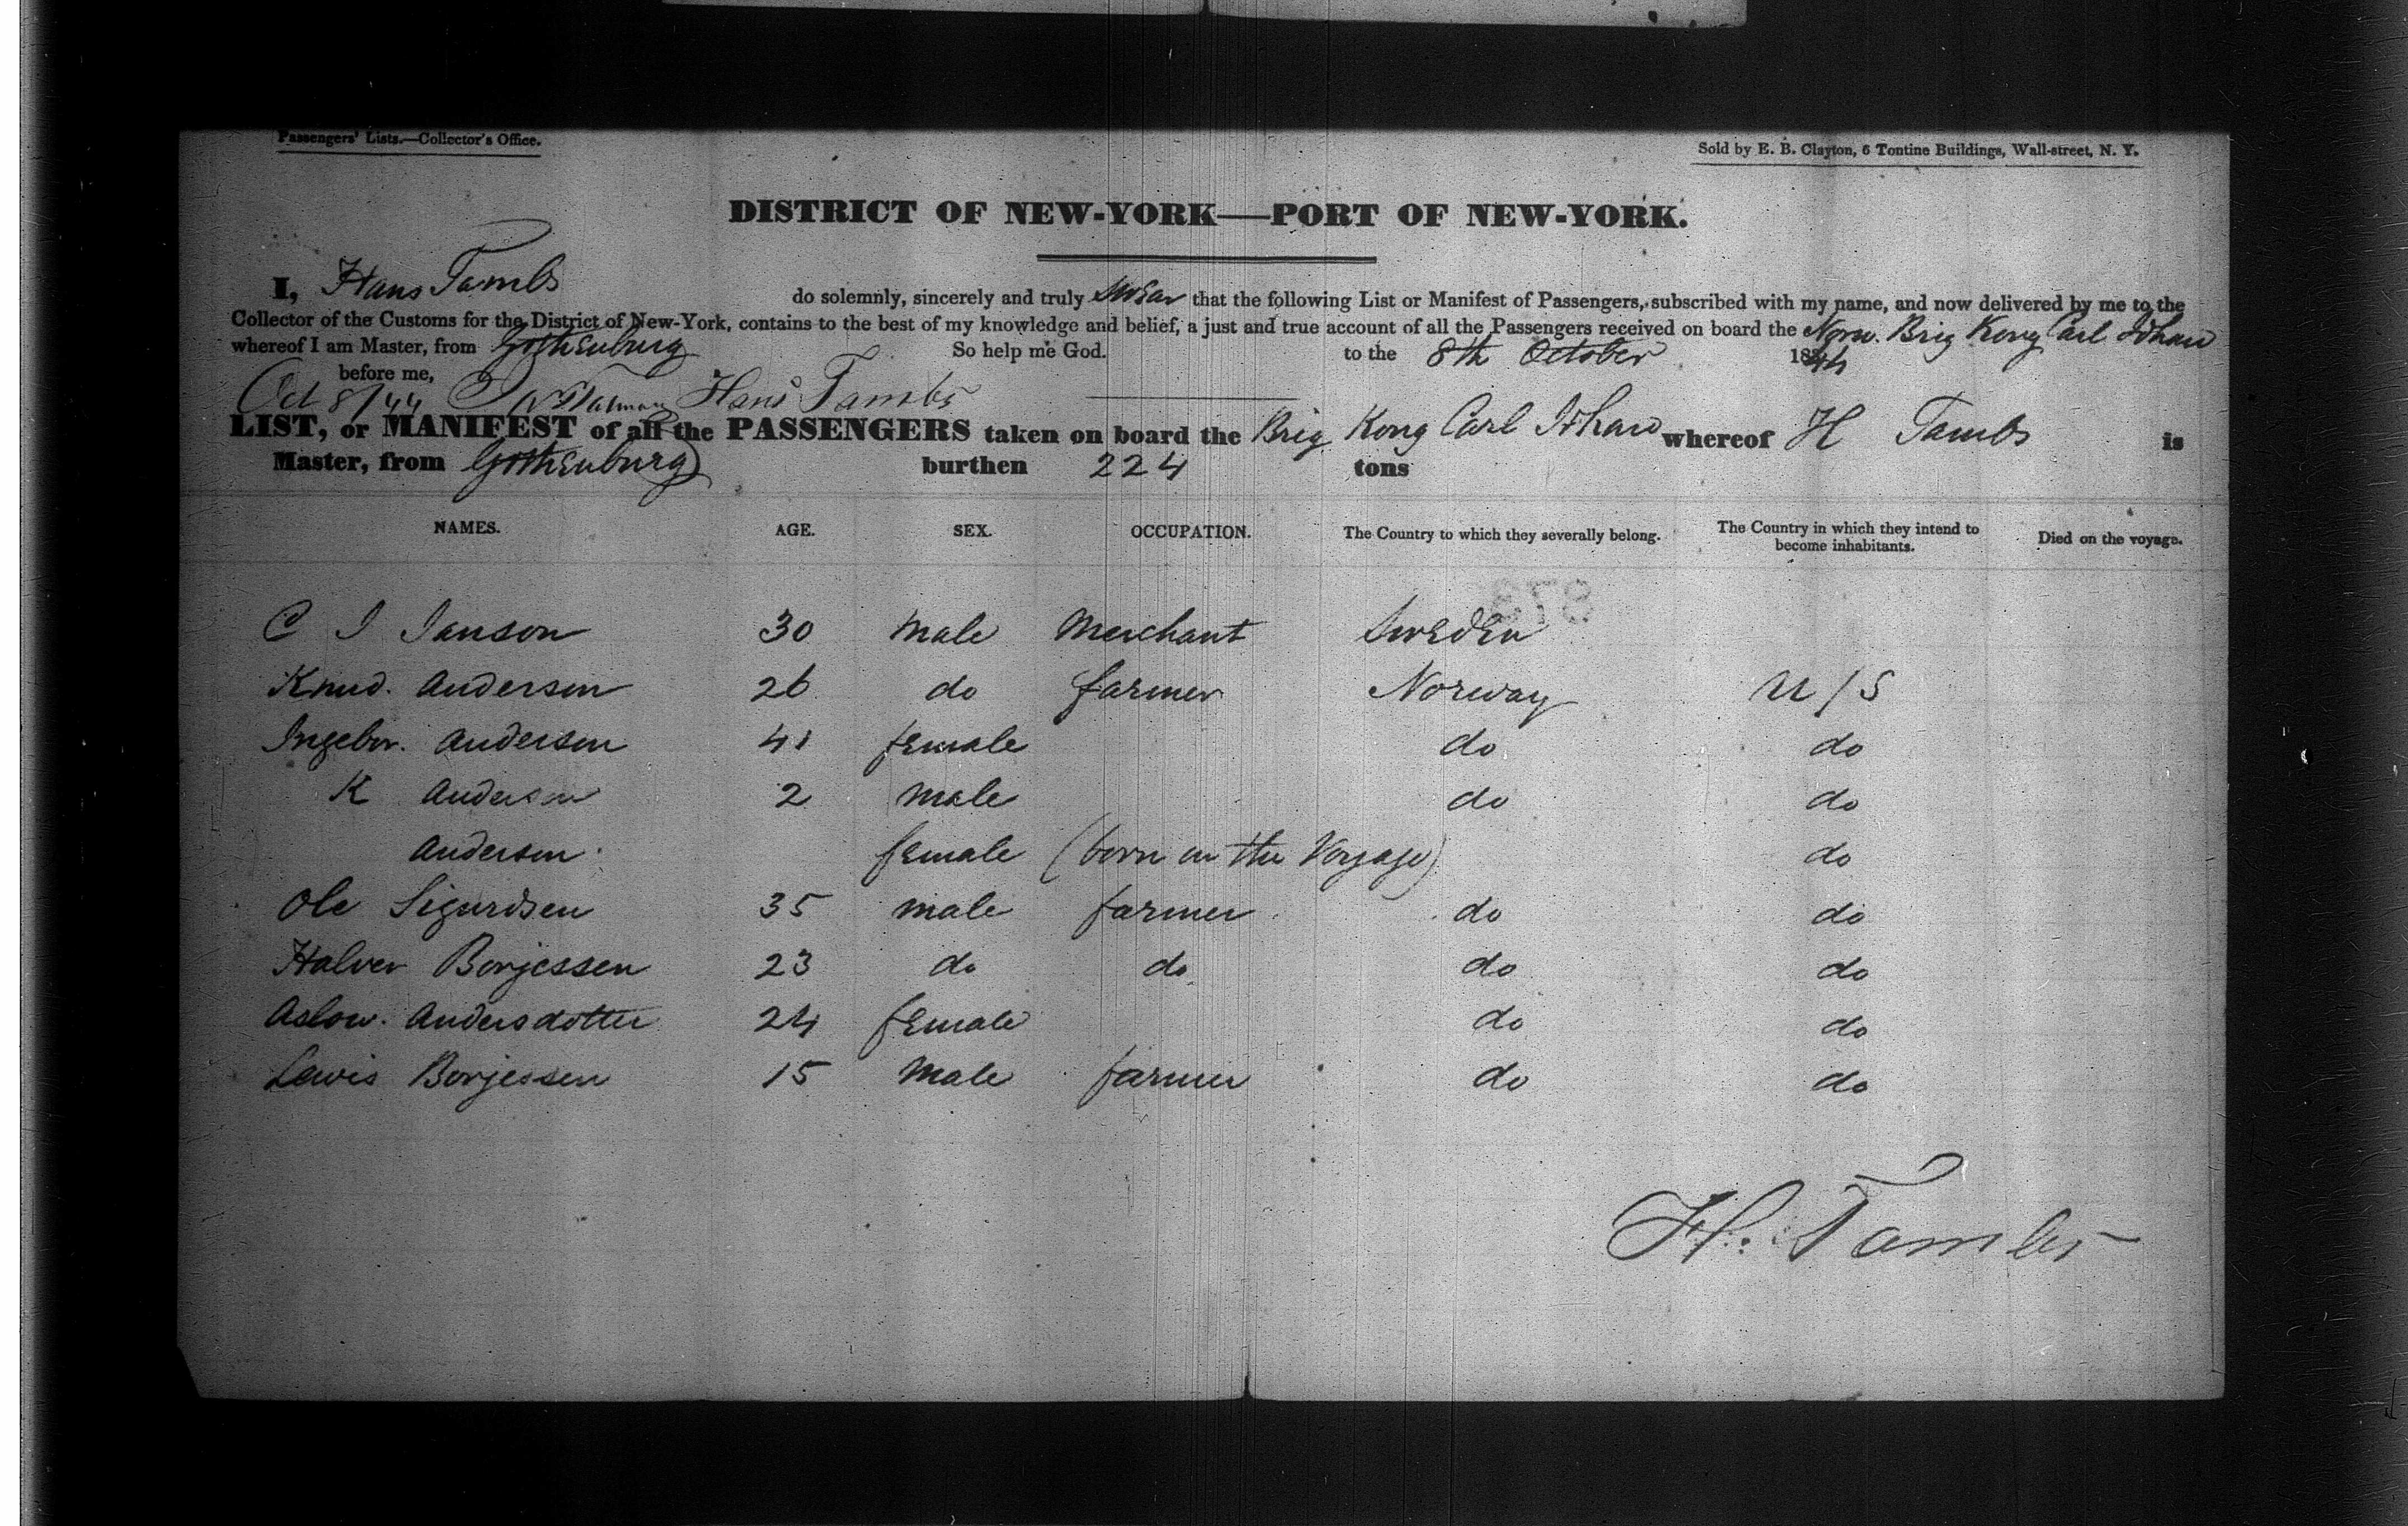 Passengers' Lists.—Collector's Office.
Sold by E. B. Clayton, 6 Tontine Buildings, Wall-street, N. Y.
DISTRICT OF NEW-YORK—PORT OF NEW-YORK.
I, Hans Tambs do solemnly, sincerely and truly swear that the following List or Manifest of Passengers, subscribed with my name, and now delivered by me to the
Collector of the Customs for the District of New-York, contains to the best of my knowledge and belief, a just and true account of all the Passengers received on board the Norw. Brig Kong Carl Johan
whereof I am Master, from Gothenburg So help me God. to the 8th October 1844
before me,
Oct 8/44 Hans Tambs
LIST, or MANIFEST of all the PASSENGERS taken on board the Brig Kong Carl Johan whereof H Tambs is
Master, from Gothenburg burthen 224 tons
NAMES. AGE. SEX. OCCUPATION. The Country to which they severally belong. The Country in which they intend to become inhabitants. Died on the voyage.
C J Janson 30 male Merchant Sweden
Knud. Andersen 26 do farmer Norway U/S
Ingebor. Andersen 41 female do do
K Andersen 2 male do do
Andersen female (born on the Voyage) do
Ole Sigurdsen 35 male farmer do do
Halver Borjessen 23 do do do do
Aslow. Andersdotter 24 female do do
Lewis Borjessen 15 Male farmer do do
H. Tambs